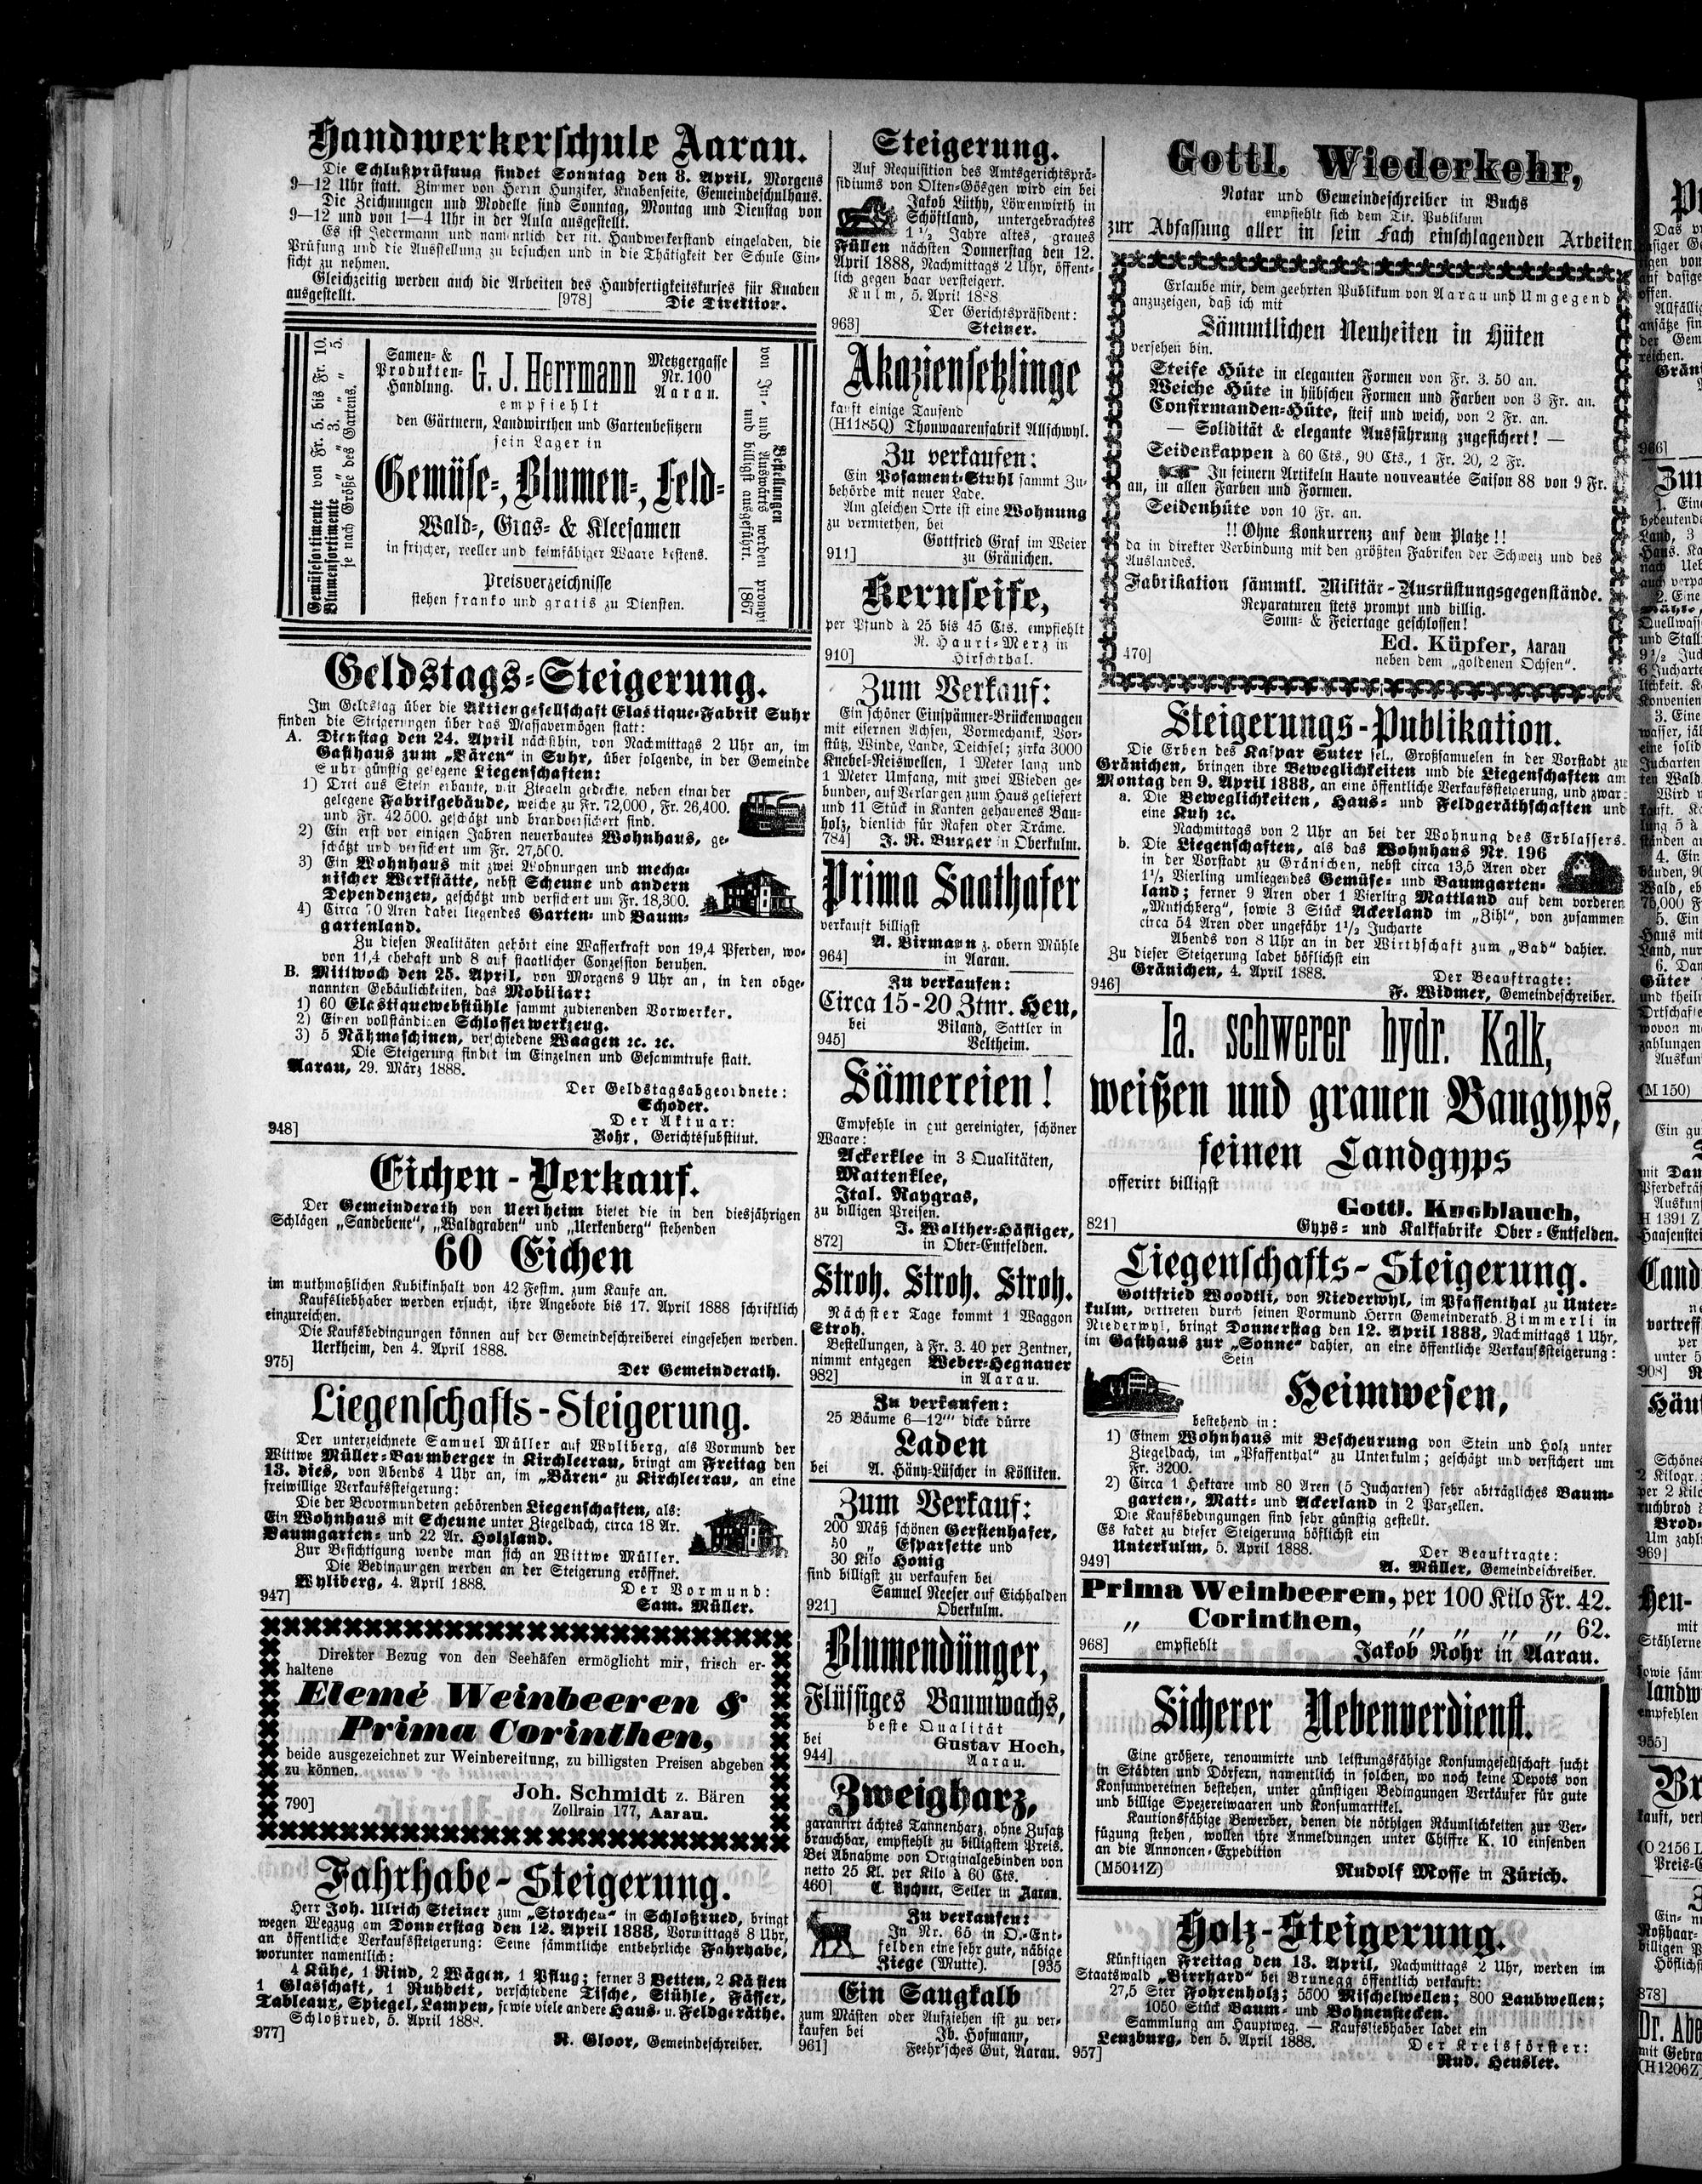 Handwerkerschule Aarau.
Die Schlußprüfung findet Sonntag den 8. April, Morgens
9—12 Uhr statt. Zimmer von Herrn Hunziker, Knabenseite, Gemeindeschulhaus.
Die Zeichnungen und Modelle sind Sonntag, Montag und Dienstag von
9—12 und von 1—4 Uhr in der Aula ausgestellt.
Es ist Jedermann und namentlich der tit. Handwerkerstand eingeladen, die
Prüfung und die Ausstellung zu besuchen und in die Thätigkeit der Schule Ein-
sicht zu nehmen.
Gleichzeitig werden auch die Arbeiten des Handfertigkeitskurses für Knaben
ausgestellt. [978] Die Direktion.
Gemüsesortimente von Fr. 5. bis Fr. 10.
Blumensortimente „ „ 3. „ „ 5.
je nach Größe des Gartens.
Samen- &
Produkten-
Handlung.
G. J. Herrmann
Metzgergasse
Nr. 100
Aarau.
empfiehlt
den Gärtnern, Landwirthen und Gartenbesitzern
sein Lager in
Gemüse-, Blumen-, Feld-
Wald-, Gras- & Kleesamen
in frischer, reeller und keimfähiger Waare bestens.
Preisverzeichnisse
stehen franko und gratis zu Diensten.
Bestellungen
von In- und Auswärts werden prompt
und billigst ausgeführt. [867
Geldstags-Steigerung.
Im Geldstag über die Aktiengesellschaft Elastique-Fabrik Suhr
finden die Steigerungen über das Massavermögen statt:
A. Dienstag den 24. April nächsthin, von Nachmittags 2 Uhr an, im
Gasthaus zum „Bären“ in Suhr, über folgende, in der Gemeinde
Suhr günstig gelegene Liegenschaften:
1) Drei aus Stein erbaute, mit Ziegeln gedeckte, neben einander
gelegene Fabrikgebäude, welche zu Fr. 72,000, Fr. 26,400.
und Fr. 42 500. geschätzt und brandversichert sind.
2) Ein erst vor einigen Jahren neuerbautes Wohnhaus, ge-
schätzt und versichert um Fr. 27,500.
3) Ein Wohnhaus mit zwei Wohnungen und mecha-
nischer Werkstätte, nebst Scheune und andern
Dependenzen, geschätzt und versichert um Fr. 18,300.
4) Circa 70 Aren dabei liegendes Garten- und Baum-
gartenland.
Zu diesen Realitäten gehört eine Wasserkraft von 19,4 Pferden, wo-
von 11,4 ehehaft und 8 auf staatlicher Conzession beruhen.
B. Mittwoch den 25. April, von Morgens 9 Uhr an, in den obge-
nannten Gebäulichkeiten, das Mobiliar:
1) 60 Elastiquewebstühle sammt zudienenden Vorwerker.
2) Einen vollständigen Schlosserwerkzeug.
3) 5 Nähmaschinen, verschiedene Waagen ꝛc. ꝛc.
Die Steigerung findet im Einzelnen und Gesammtrufe statt.
Aarau, 29. März 1888.
Der Geldstagsabgeordnete:
Schoder.
Der Aktuar:
948] Rohr, Gerichtssubstitut.
Eichen-Verkauf.
Der Gemeinderath von Uerkheim bietet die in den diesjährigen
Schlägen „Sandebene“, „Waldgraben“ und „Uerkenberg“ stehenden
60 Eichen
im muthmaßlichen Kubikinhalt von 42 Festm. zum Kaufe an.
Kaufsliebhaber werden ersucht, ihre Angebote bis 17. April 1888 schriftlich
einzureichen.
Die Kaufsbedingungen können auf der Gemeindeschreiberei eingesehen werden.
Uerkheim, den 4. April 1888.
975] Der Gemeinderath.
Liegenschafts-Steigerung.
Der unterzeichnete Samuel Müller auf Wyliberg, als Vormund der
Wittwe Müller-Baumberger in Kirchleerau, bringt am Freitag den
13. dies, von Abends 4 Uhr an, im „Bären“ zu Kirchleerau, an eine
freiwillige Verkaufssteigerung:
Die der Bevormundeten gehörenden Liegenschaften, als:
Ein Wohnhaus mit Scheune unter Ziegeldach, circa 18 Ar.
Baumgarten- und 22 Ar. Holzland.
Zur Besichtigung wende man sich an Wittwe Müller.
Die Bedingungen werden an der Steigerung eröffnet.
Wyliberg, 4. April 1888. Der Vormund:
947] Sam. Müller.
Direkter Bezug von den Seehäfen ermöglicht mir, frisch er-
haltene
Elemé Weinbeeren &
Prima Corinthen,
beide ausgezeichnet zur Weinbereitung, zu billigsten Preisen abgeben
zu können.
Joh. Schmidt z. Bären
790] Zollrain 177, Aarau.
Fahrhabe-Steigerung.
Herr Joh. Ulrich Steiner zum „Storchen“ in Schloßrued, bringt
wegen Wegzug am Donnerstag den 12. April 1888, Vormittags 8 Uhr,
an öffentliche Verkaufssteigerung: Seine sämmtliche entbehrliche Fahrhabe,
worunter namentlich:
4 Kühe, 1 Rind, 2 Wägen, 1 Pflug; ferner 3 Betten, 2 Kästen
1 Glasschaft, 1 Ruhbett, verschiedene Tische, Stühle, Fässer,
Tableaux, Spiegel, Lampen, sowie viele andere Haus- u. Feldgeräthe.
Schloßrued, 5. April 1888.
977] R. Gloor, Gemeindeschreiber.
Steigerung.
Auf Requisition des Amtsgerichtsprä-
sidiums von Olten-Gösgen wird ein bei
Jakob Lüthy, Löwenwirth in
Schöftland, untergebrachtes
1½ Jahre altes, graues
Füllen nächsten Donnerstag den 12.
April 1888, Nachmittags 2 Uhr, öffent-
lich gegen baar versteigert.
Kulm, 5. April 1888
Der Gerichtspräsident:
963] Steiner.
Akaziensetzlinge
kauft einige Tausend
(H1185Q) Thonwaarenfabrik Allschwyl.
Zu verkaufen:
Ein Posament-Stuhl sammt Zu-
behörde mit neuer Lade.
Am gleichen Orte ist eine Wohnung
zu vermiethen, bei
Gottfried Graf im Weier
911] zu Gränichen.
Kernseife,
per Pfund à 25 bis 45 Cts. empfiehlt
R. Hauri-Merz in
910] Hirschthal.
Zum Verkauf:
Ein schöner Einspänner-Brückenwagen
mit eisernen Achsen, Vormechanik, Vor-
stütz, Winde, Lande, Deichsel; zirka 3000
Knebel-Reiswellen, 1 Meter lang und
1 Meter Umfang, mit zwei Wieden ge-
bunden, auf Verlangen zum Haus geliefert
und 11 Stück in Kanten gehauenes Bau-
holz, dienlich für Rafen oder Träme.
784] J. R. Burger in Oberkulm.
Prima Saathafer
verkauft billigst
A. Birmann z. obern Mühle
964] in Aarau.
Zu verkaufen:
Circa 15-20 Ztnr. Heu,
bei Biland, Sattler in
945] Veltheim.
Sämereien!
Empfehle in gut gereinigter, schöner
Waare:
Ackerklee in 3 Qualitäten,
Mattenklee,
Ital. Raygras,
zu billigen Preisen.
J. Walther-Häfliger,
872] in Ober-Entfelden.
Stroh. Stroh. Stroh.
Nächster Tage kommt 1 Waggon
Stroh.
Bestellungen, à Fr. 3. 40 per Zentner,
nimmt entgegen Weber-Hegnauer
982] in Aarau.
Zu verkaufen:
25 Bäume 6—12''' dicke dürre
Laden
bei A. Häny-Lüscher in Kölliken.
Zum Verkauf:
200 Mäß schönen Gerstenhafer,
50 „ Esparsette und
30 Kilo Honig
sind billigst zu verkaufen bei
Samuel Neeser auf Eichhalden
921] Oberkulm.
Blumendünger,
Flüssiges Baumwachs,
beste Qualität
bei Gustav Hoch,
944] Aarau.
Zweigharz,
garantirt ächtes Tannenharz, ohne Zusatz
brauchbar, empfiehlt zu billigstem Preis.
Bei Abnahme von Originalgebinden von
netto 25 Kl. per Kilo à 60 Cts.
460] C. Rychner, Seiler in Aarau.
Zu verkaufen:
In Nr. 65 in O.-Ent-
felden eine sehr gute, nähige
Ziege (Mutte). [935
Ein Saugkalb
zum Mästen oder Aufziehen ist zu ver-
kaufen bei Jb. Hofmann,
961] Feehr'sches Gut, Aarau.
Gottl. Wiederkehr,
Notar und Gemeindeschreiber in Buchs
empfiehlt sich dem Tit. Publikum
zur Abfassung aller in sein Fach einschlagenden Arbeiten
Erlaube mir, dem geehrten Publikum von Aarau und Umgegend
anzuzeigen, daß ich mit
Sämmtlichen Neuheiten in Hüten
versehen bin.
Steife Hüte in eleganten Formen von Fr. 3. 50 an.
Weiche Hüte in hübschen Formen und Farben von 3 Fr. an.
Confirmanden-Hüte, steif und weich, von 2 Fr. an.
— Solidität & elegante Ausführung zugesichert! —
Seidenkappen à 60 Cts., 90 Cts., 1 Fr. 20, 2 Fr.
In feinern Artikeln Haute nouveautée Saison 88 von 9 Fr.
an, in allen Farben und Formen.
Seidenhüte von 10 Fr. an.
!! Ohne Konkurrenz auf dem Platze !!
da in direkter Verbindung mit den größten Fabriken der Schweiz und des
Auslandes.
Fabrikation sämmtl. Militär-Ausrüstungsgegenstände.
Reparaturen stets prompt und billig.
Sonn- & Feiertage geschlossen!
Ed. Küpfer, Aarau
470] neben dem „goldenen Ochsen“.
Steigerungs-Publikation.
Die Erben des Kaspar Suter sel., Großsamuelen in der Vorstadt zu
Gränichen, bringen ihre Beweglichkeiten und die Liegenschaften am
Montag den 9. April 1888, an eine öffentliche Verkaufssteigerung, und zwar:
a. Die Beweglichkeiten, Haus- und Feldgeräthschaften und
eine Kuh ꝛc.
Nachmittags von 2 Uhr an bei der Wohnung des Erblassers.
b. Die Liegenschaften, als das Wohnhaus Nr. 196
in der Vorstadt zu Gränichen, nebst circa 13,5 Aren oder
1½ Vierling umliegendes Gemüse- und Baumgarten-
land; ferner 9 Aren oder 1 Vierling Mattland auf dem vorderen
„Mutschberg“, sowie 3 Stück Ackerland im „Zihl“, von zusammen
circa 54 Aren oder ungefähr 1½ Jucharte
Abends von 8 Uhr an in der Wirthschaft zum „Bad“ dahier.
Zu dieser Steigerung ladet höflichst ein
Gränichen, 4. April 1888. Der Beauftragte:
946] F. Widmer, Gemeindeschreiber.
Ia. schwerer hydr. Kalk,
weißen und grauen Baugyps,
feinen Landgyps
offerirt billigst
Gottl. Knoblauch,
821] Gyps- und Kalkfabrike Ober-Entfelden.
Liegenschafts-Steigerung.
Gottfried Woodtli, von Niederwyl, im Pfaffenthal zu Unter-
kulm, vertreten durch seinen Vormund Herrn Gemeinderath Zimmerli in
Niederwyl, bringt Donnerstag den 12. April 1888, Nachmittags 1 Uhr,
im Gasthaus zur „Sonne“ dahier, an eine öffentliche Verkaufssteigerung:
Sein
Heimwesen,
bestehend in:
1) Einem Wohnhaus mit Bescheurung von Stein und Holz unter
Ziegeldach, im „Pfaffenthal“ zu Unterkulm; geschätzt und versichert um
Fr. 3200.
2) Circa 1 Hektare und 80 Aren (5 Jucharten) sehr abträgliches Baum-
garten-, Matt- und Ackerland in 2 Parzellen.
Die Kaufsbedingungen sind sehr günstig gestellt.
Es ladet zu dieser Steigerung höflichst ein
Unterkulm, 5. April 1888. Der Beauftragte:
949] A. Müller, Gemeindeschreiber.
Prima Weinbeeren, per 100 Kilo Fr. 42.
„ Corinthen, „ „ „ „ 62.
968] empfiehlt Jakob Rohr in Aarau.
Sicherer Nebenverdienst.
Eine größere, renommirte und leistungsfähige Konsumgesellschaft sucht
in Städten und Dörfern, namentlich in solchen, wo noch keine Depots von
Konsumvereinen bestehen, unter günstigen Bedingungen Verkäufer für gute
und billige Spezereiwaaren und Konsumartikel.
Kautionsfähige Bewerber, denen die nöthigen Räumlichkeiten zur Ver-
fügung stehen, wollen ihre Anmeldungen unter Chiffre K. 10 einsenden
an die Annoncen-Expedition
(M5041Z) Rudolf Mosse in Zürich.
Holz-Steigerung.
Künftigen Freitag den 13. April, Nachmittags 2 Uhr, werden im
Staatswald „Birrhard“ bei Brunegg öffentlich verkauft:
27,5 Ster Fohrenholz; 5500 Mischelwellen; 800 Laubwellen;
1050 Stück Baum- und Bohnenstecken.
Sammlung am Hauptweg. — Kaufsliebhaber ladet ein
Lenzburg, den 5. April 1888. Der Kreisförster:
957] Rud. Heusler.